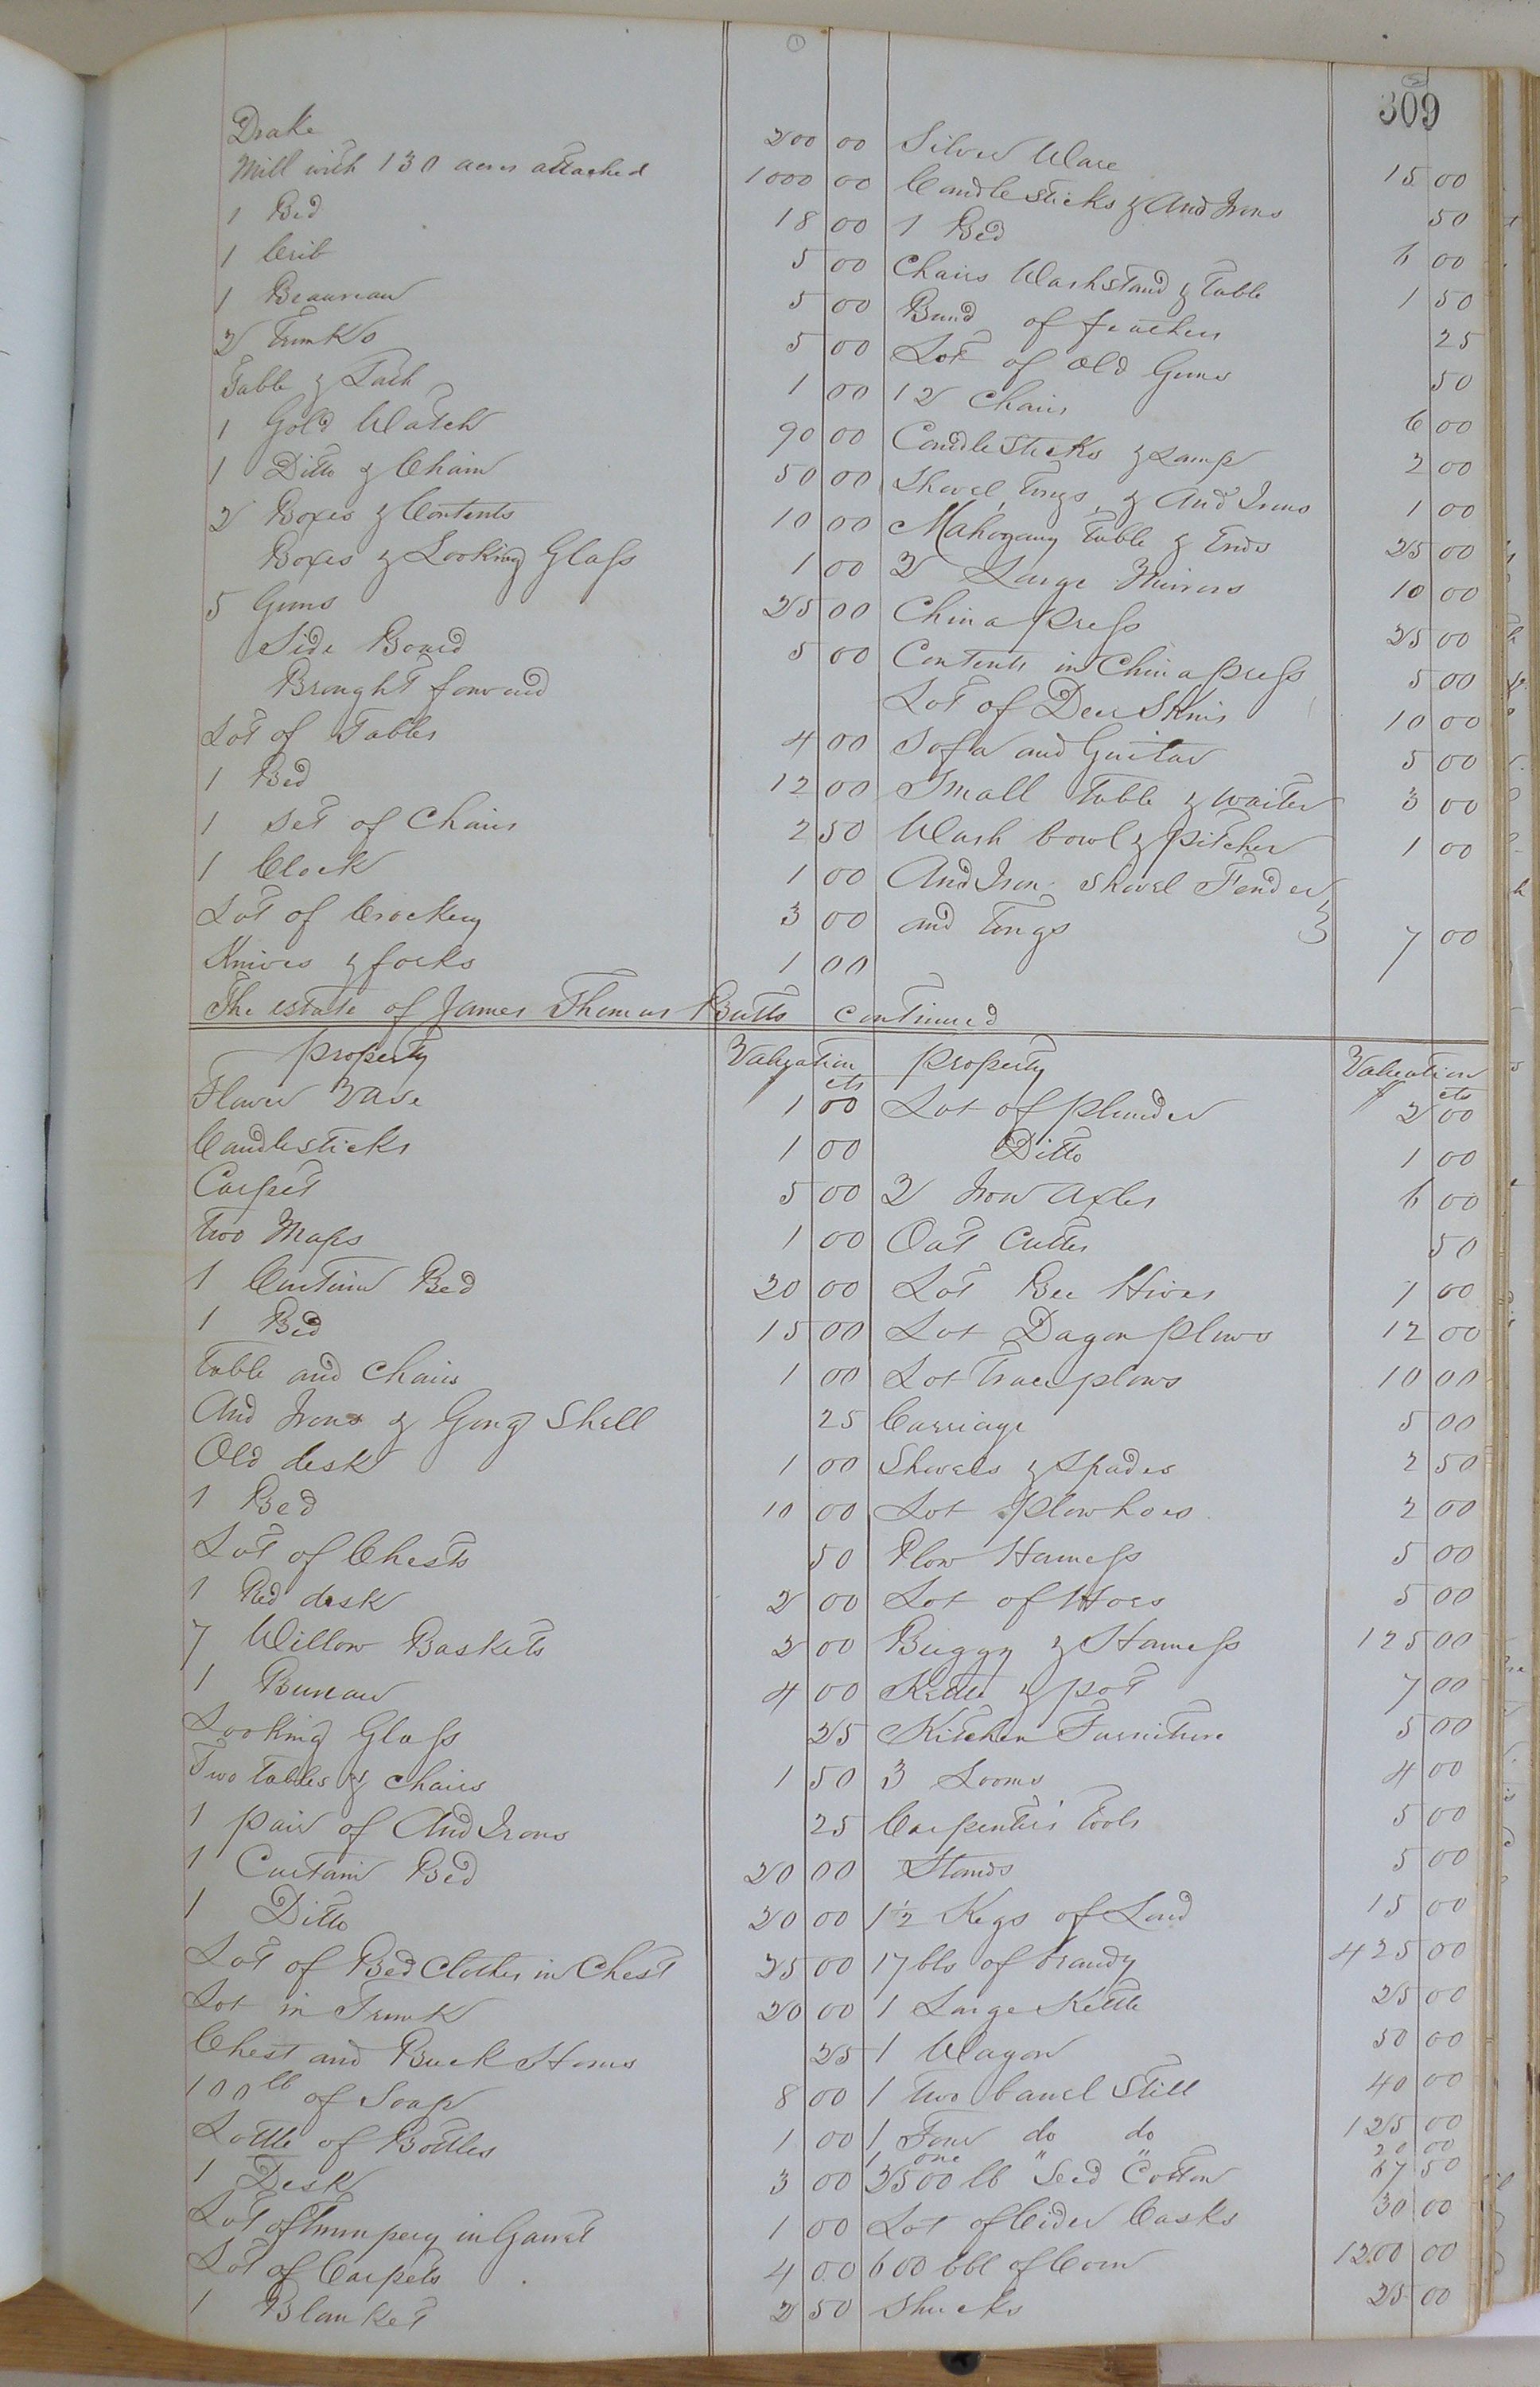 309
Drake 200 00
Mill with 130 acres attached 1000 00
1 Bed 18 00
1 Crib 5 00
1 Beaureau 5 00
2 Trunks 5 00
Table & 1 00
1 Gold Watch 90 00
1 Ditto & Chain 50 00
2 Boxes & Contents 10 00
Boxes & Looking Glass 1 00
5 Guns 25 00
Side Board 5 00
Brought forward
Lot of Tables 4 00
1 Bed 12 00
1 Set of Chairs 2 50
1 Clock 1 00
Lot of Crockery 3 00
Knives & forks 1 00
Silver Ware 15 00
Candlesticks & And Irons 50
1 Bed 6 00
Chairs Washstand & Table 1 50
Bund of feathers 25
Lot of old Guns 50
12 Chairs 6 00
Candlesticks & Lamp 2 00
Shovel, Tongs, & And Irons 1 00
Mahogany Table & Ends 25 00
2 Large Mirrors 10 00
China press 25 00
Contents in China press 5 00
Lot of Deer Skins 10 00
Sofa and Guitar 5 00
Small Table & waiter 3 00
Wash bowl & pitcher 1 00
And Iron Shovel Fender
and Tongs } 7 00
The estate of James Thomas Butts continued
Property Valuation
cts
Flower Vase 1 00
Candlesticks 1 00
Carpet 5 00
Two Maps 1 00
1 Curtain Bed 20 00
1 Bed 15 00
Table and Chairs 1 00
And Irons & Gong Shell 25
Old desk 1 00
1 Bed 10 00
Lot of Chests 50
1 Red desk 2 00
7 Willow Baskets 2 00
1 Bureau 4 00
Looking Glass 25
Two tables & chairs 1 50
1 pair of And Irons 25
1 Curtain Bed 20 00
1 Ditto 20 00
Lot of Bed Clothes in Chest 25 00
Lot in Trunk 20 00
Chest and Buck Horns 25
100 lb of Soap 8 00
Lottle of Bottles 1 00
1 Desk 3 00
Lot of Trumpery in Garret 1 00
Lot of Carpets 4 00
1 Blanket 2 50
Property Valuation
cts
Lot of plunder 2 00
Ditto 1 00
2 Iron Axles 6 00
Oat Cutter 50
Lot Bee Hives 1 00
Lot Dagon plows 12 00
Lot Trace plows 10 00
Carriage 5 00
Shovels & Spades 2 50
Lot plow hoes 2 00
Plow Harness 5 00
Lot of Hoes 5 00
Buggy & Harness 125 00
Kettle & pot 7 00
Kitchen Furniture 5 00
3 Looms 4 00
Carpenter's Tools 5 00
Stands 5 00
1½ Kegs of Lard 15 00
17 bls of brandy 425 00
1 Large Kettle 25 00
1 Wagon 50 00
1 two barrel Still 40 00
1 Four do do 125 00
1 one " " 20 00
3500 lb Seed Cotton 67 50
Lot of Cider Casks 30 00
600 bbl of Corn 1200 00
Shucks 25 00